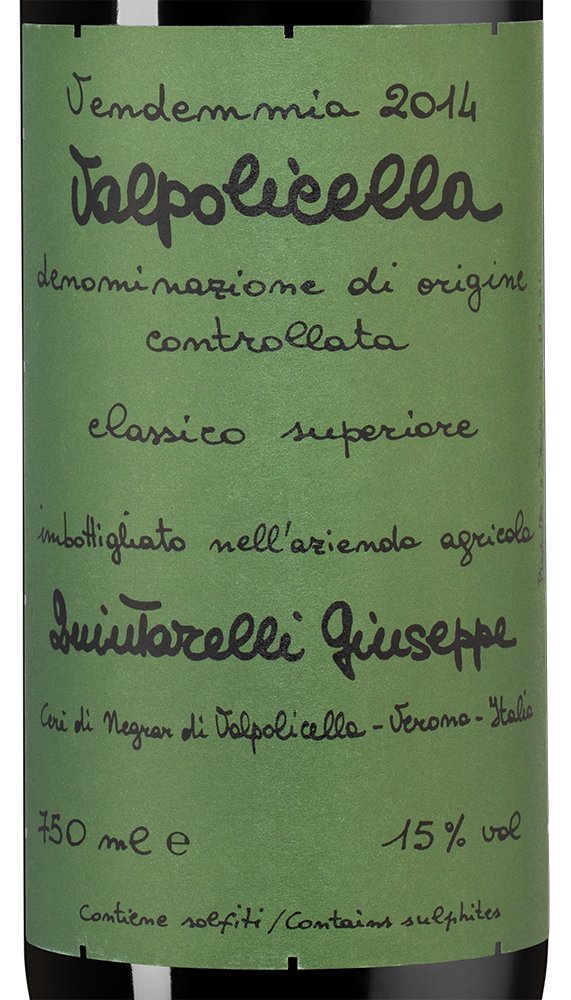 Vendemmia 2014
Valpolicella
denominazione di origine
controllata
classico superiore
imbottigliato nell'azienda agricola
Quintarelli Giuseppe
Cerè di Negrar di Valpolicella - Verona - Italia
750 ml e
15% vol
Contiene solfiti / Contains sulphites